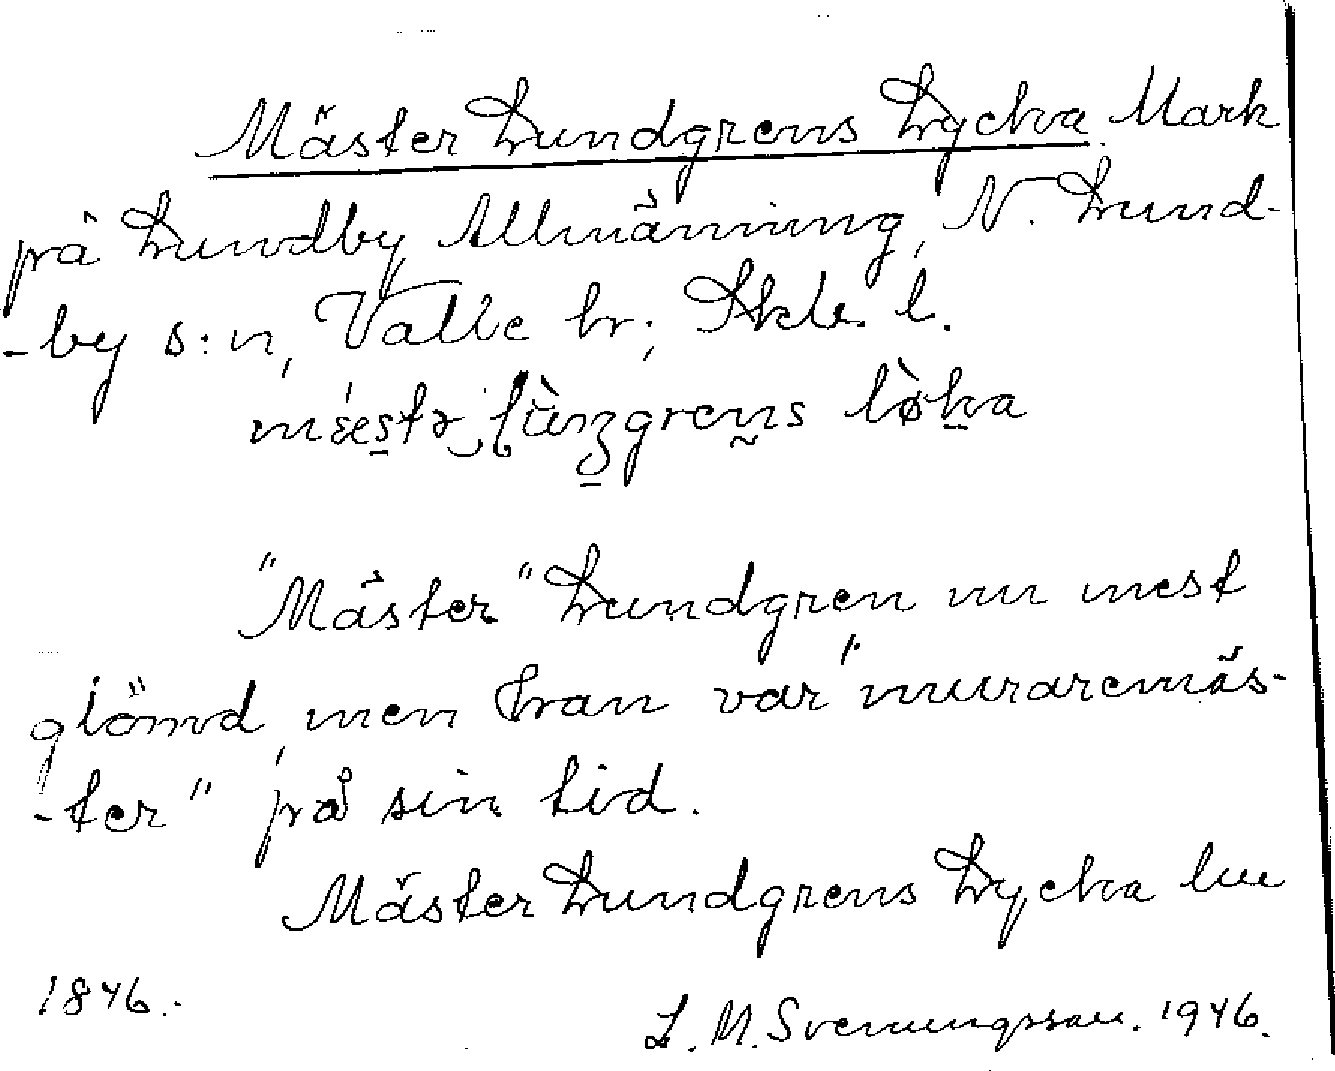 Mäster Lundgrens Lycka Mark
på Lundby Allmänning, N. Lund-
-by s:n, Valle hr; Skb. l.
"Mäster" Lundgren nu mest
glömd, men han var "muraremäs-
-ter" på sin tid.
Mäster Lundgrens Lycka lm
1846.
L. M. Svenungsson. 1946.